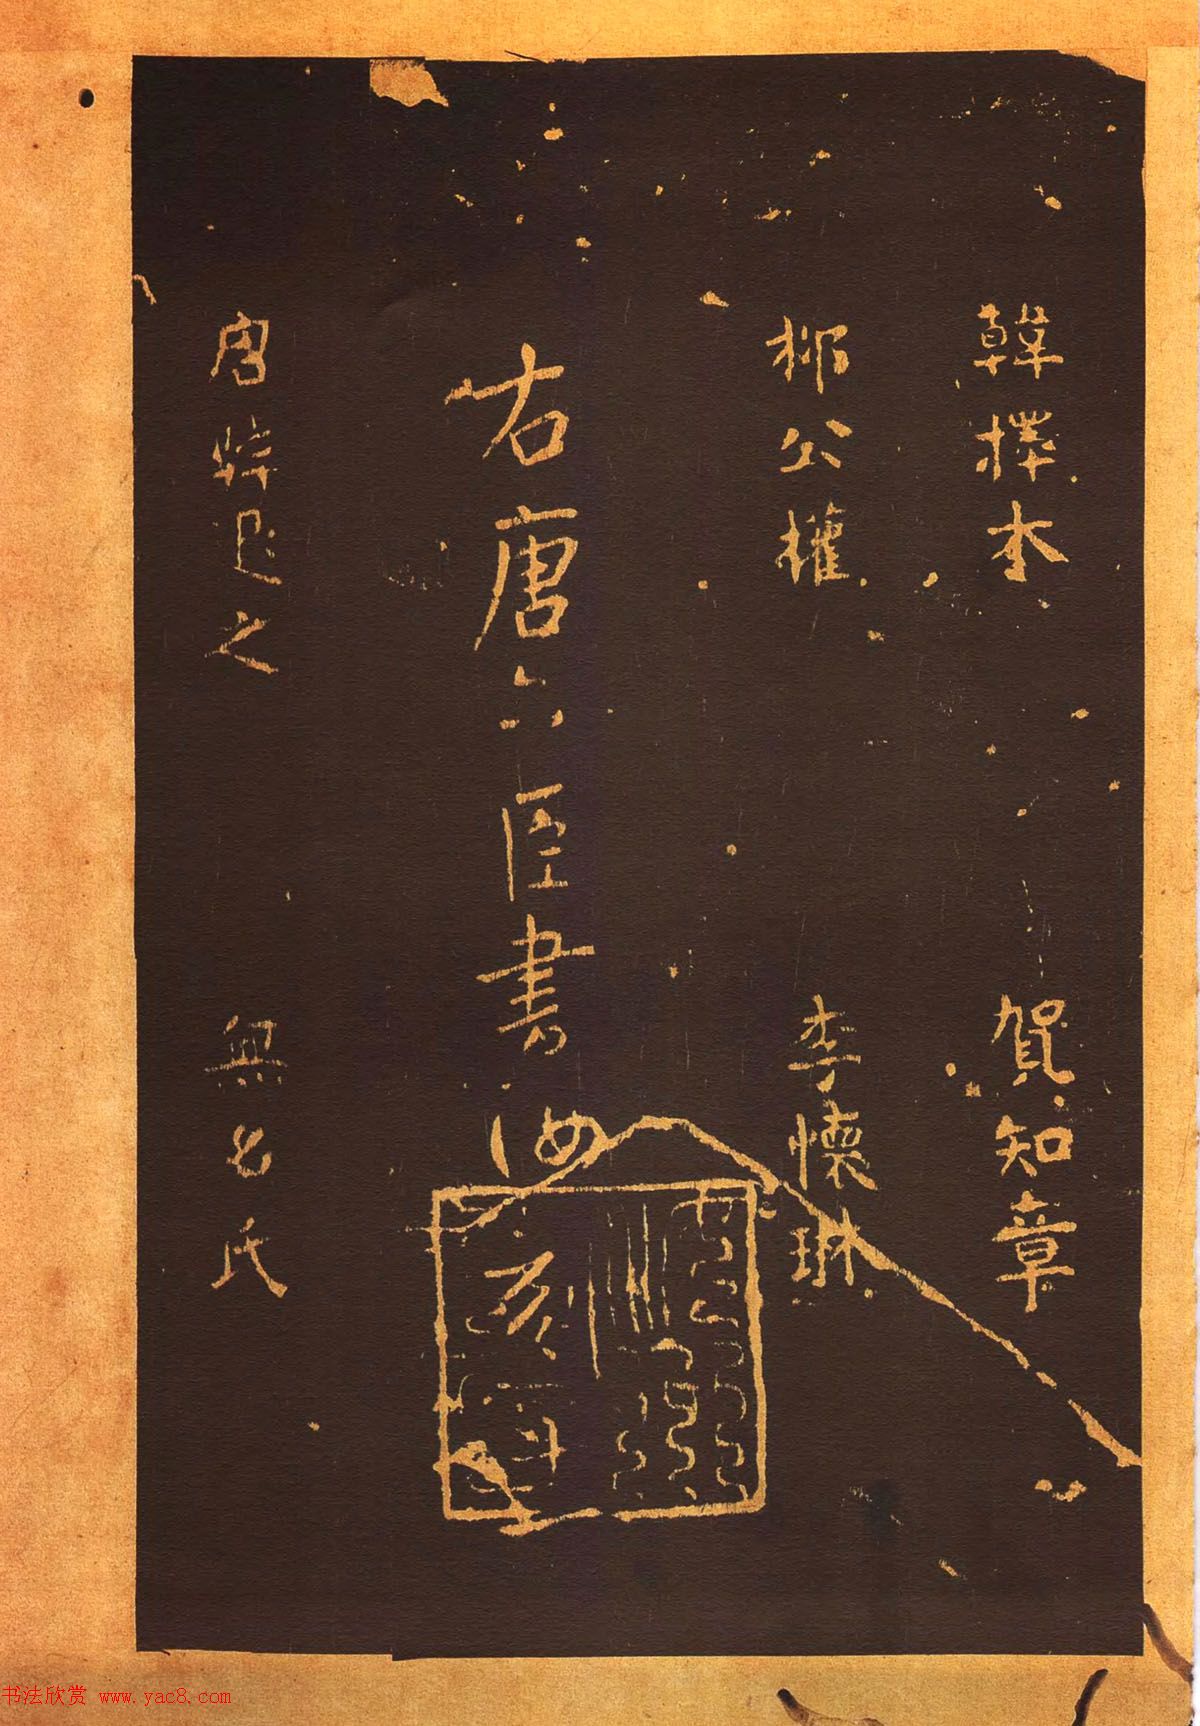 韓擇木 賀知章
柳公權 李懷琳
右唐六臣書
汝
刻
唐韓退之 無名氏
书法欣赏 www.yac8.com